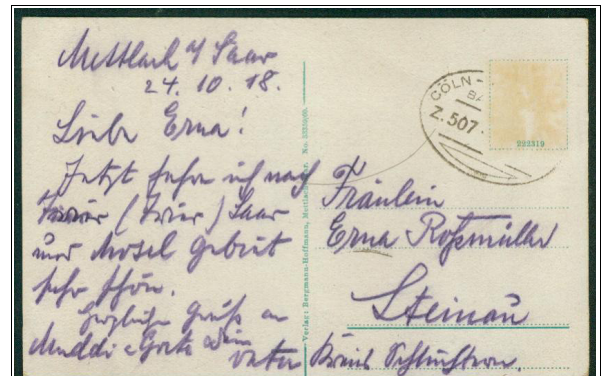 Mettlach a/ Saar
24. 10. 18.
Liebe Erna!
Jetzt fahre ich nach
(Trier) Saar
und Mosel Gebiet
sehr schön.
Herzliche Grüße an
Muddi Dein
Vater
Verlag: Bergmann-Hoffmann, Mettlach
CÖLN -
BA
Z. 507.
222319
Fräulein
Erna Roßmüller
Steinau
Kreis Schlüchtern.